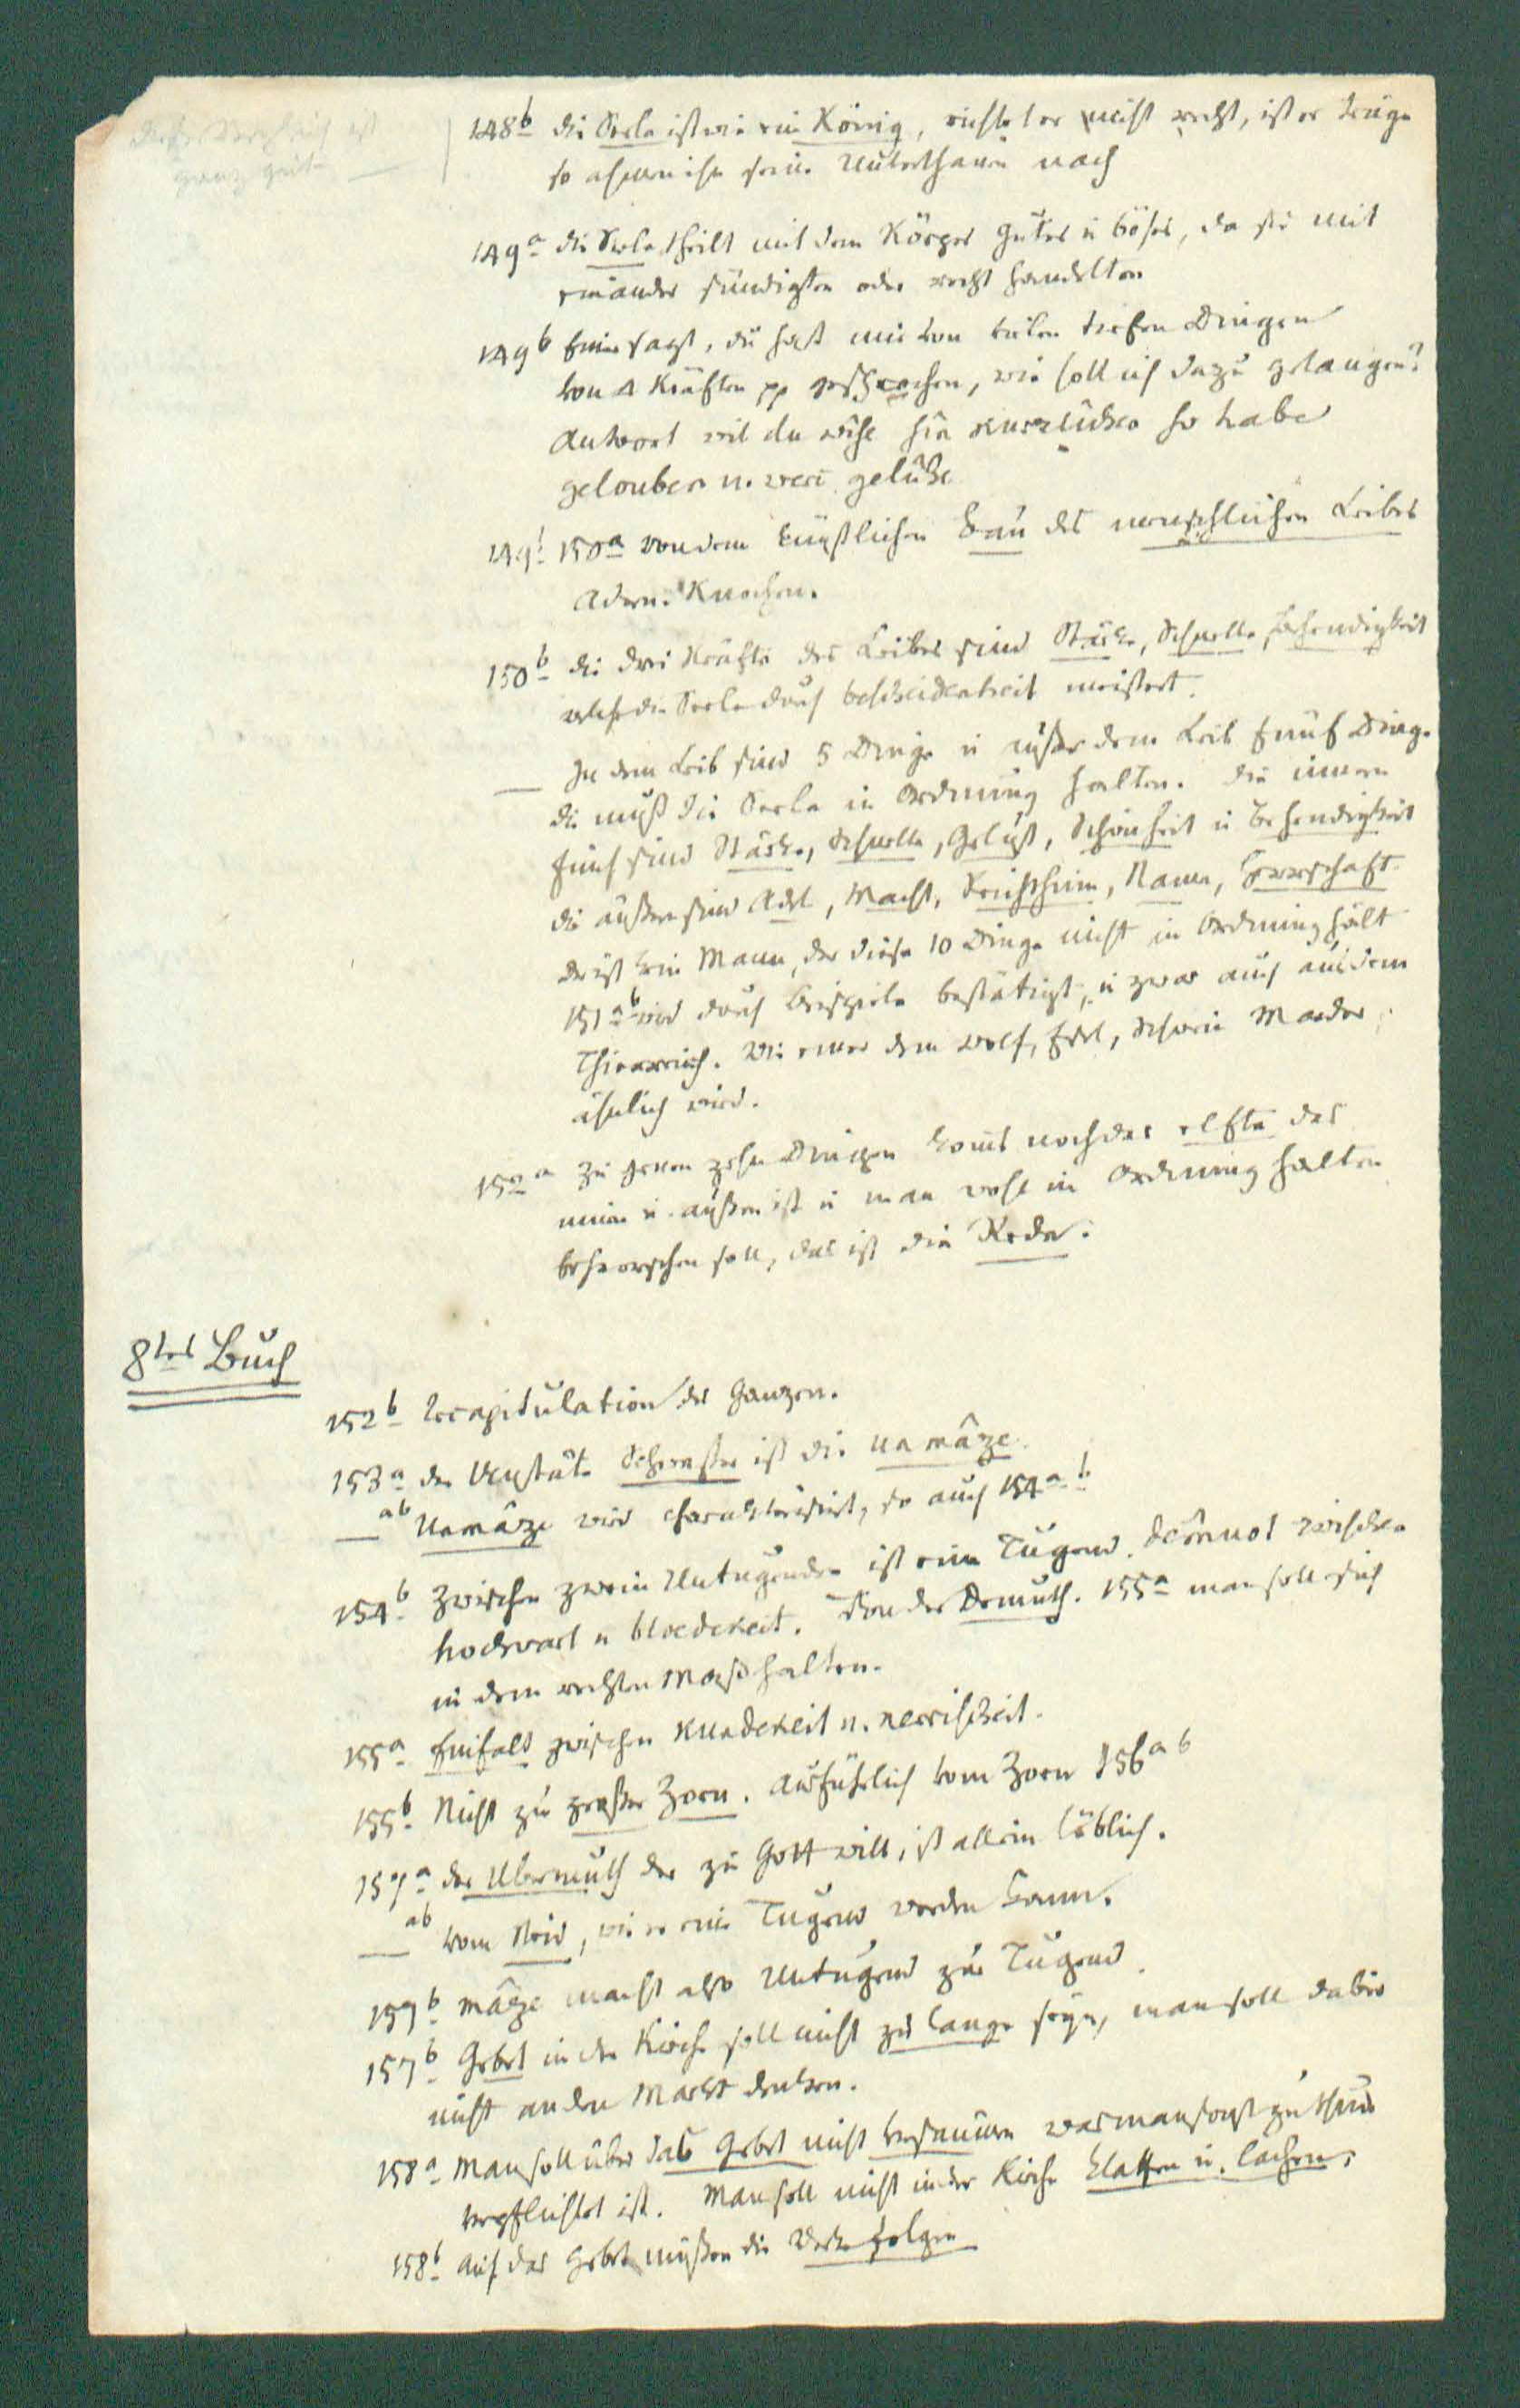 148b die Seele ist wie ein König, richtet er nicht recht, ist er träge
so ahmen ihm seine Unterthanen nach
149a die Seele theilt mit dem Körper gutes u böses, da sie mit
einander sündigten oder recht handelten
149b Einer sagt, du hast mir von vielen tiefen Dingen
von 4 Kräften pp gesprochen, wie soll ich dazu gelangen?
Antwort wil du wise sîn so habe
gelouben u.
149b 150a von dem künstlichen Bau des menschlichen Leibes
Adern. Knochen.
150b die drei Kräfte des Leibes sind Stärke, Schnelle, Behendigkeit
welche die Seele durch bescheidenheit meistert.
— In dem Leib sind 5 Dinge u außer dem Leib fünf Dinge
die muß die Seele in Ordnung halten. Die innern
fünf sind Stärke, Schnelle, Gelüst, Schönheit u Behendigkeit
die äußern sind Adel, Macht, Reichthum, Name, Herrschaft.
der ist kein Mann, der diese 10 Dinge nicht in Ordnung hält
151ab wird durch Beispiele bestätigt, u zwar auch aus dem
Thierreich. Wie einer dem Wolf, Esel, Schwein Marder
ähnlich wird.
152a zu jenen zehn Dingen kommt noch das elfte das
innen u. außen ist u man wohl in Ordnung halten
beherrschen soll, das ist die Rede.
8tes Buch
152b Recapitulation des Ganzen.
153a der Unstäte Schwester ist die unmâze.
— ab Unmâze wird charakterisirt, so auch 154a b
154b Zwischen zwein Untugenden ist eine Tugend. dêmuot zwischen
hochvart u bloedekeit. Von der Demuth. 155a man soll sich
in dem rechten Maß halten.
155a Einfalt zwischen kündekeit u. nerrischeit.
155b Nicht zu großer Zorn. Ausführlich vom Zorn 156a b
157a der Übermuth der zu Gott will, ist allein löblich.
— ab vom Neid, wie er eine Tugend werden kann.
157b mâze macht also Untugend zur Tugend.
157b Gebet in der Kirche soll nicht zu lange seyn, man soll dabei
nicht an den Markt denken.
158a Man soll über das Gebet nicht versäumen was man sonst zu thun
verpflichtet ist. Man soll nicht in der Kirche klaffen u. lachen.
158b Auf das Gebet müßen die Werke folgen